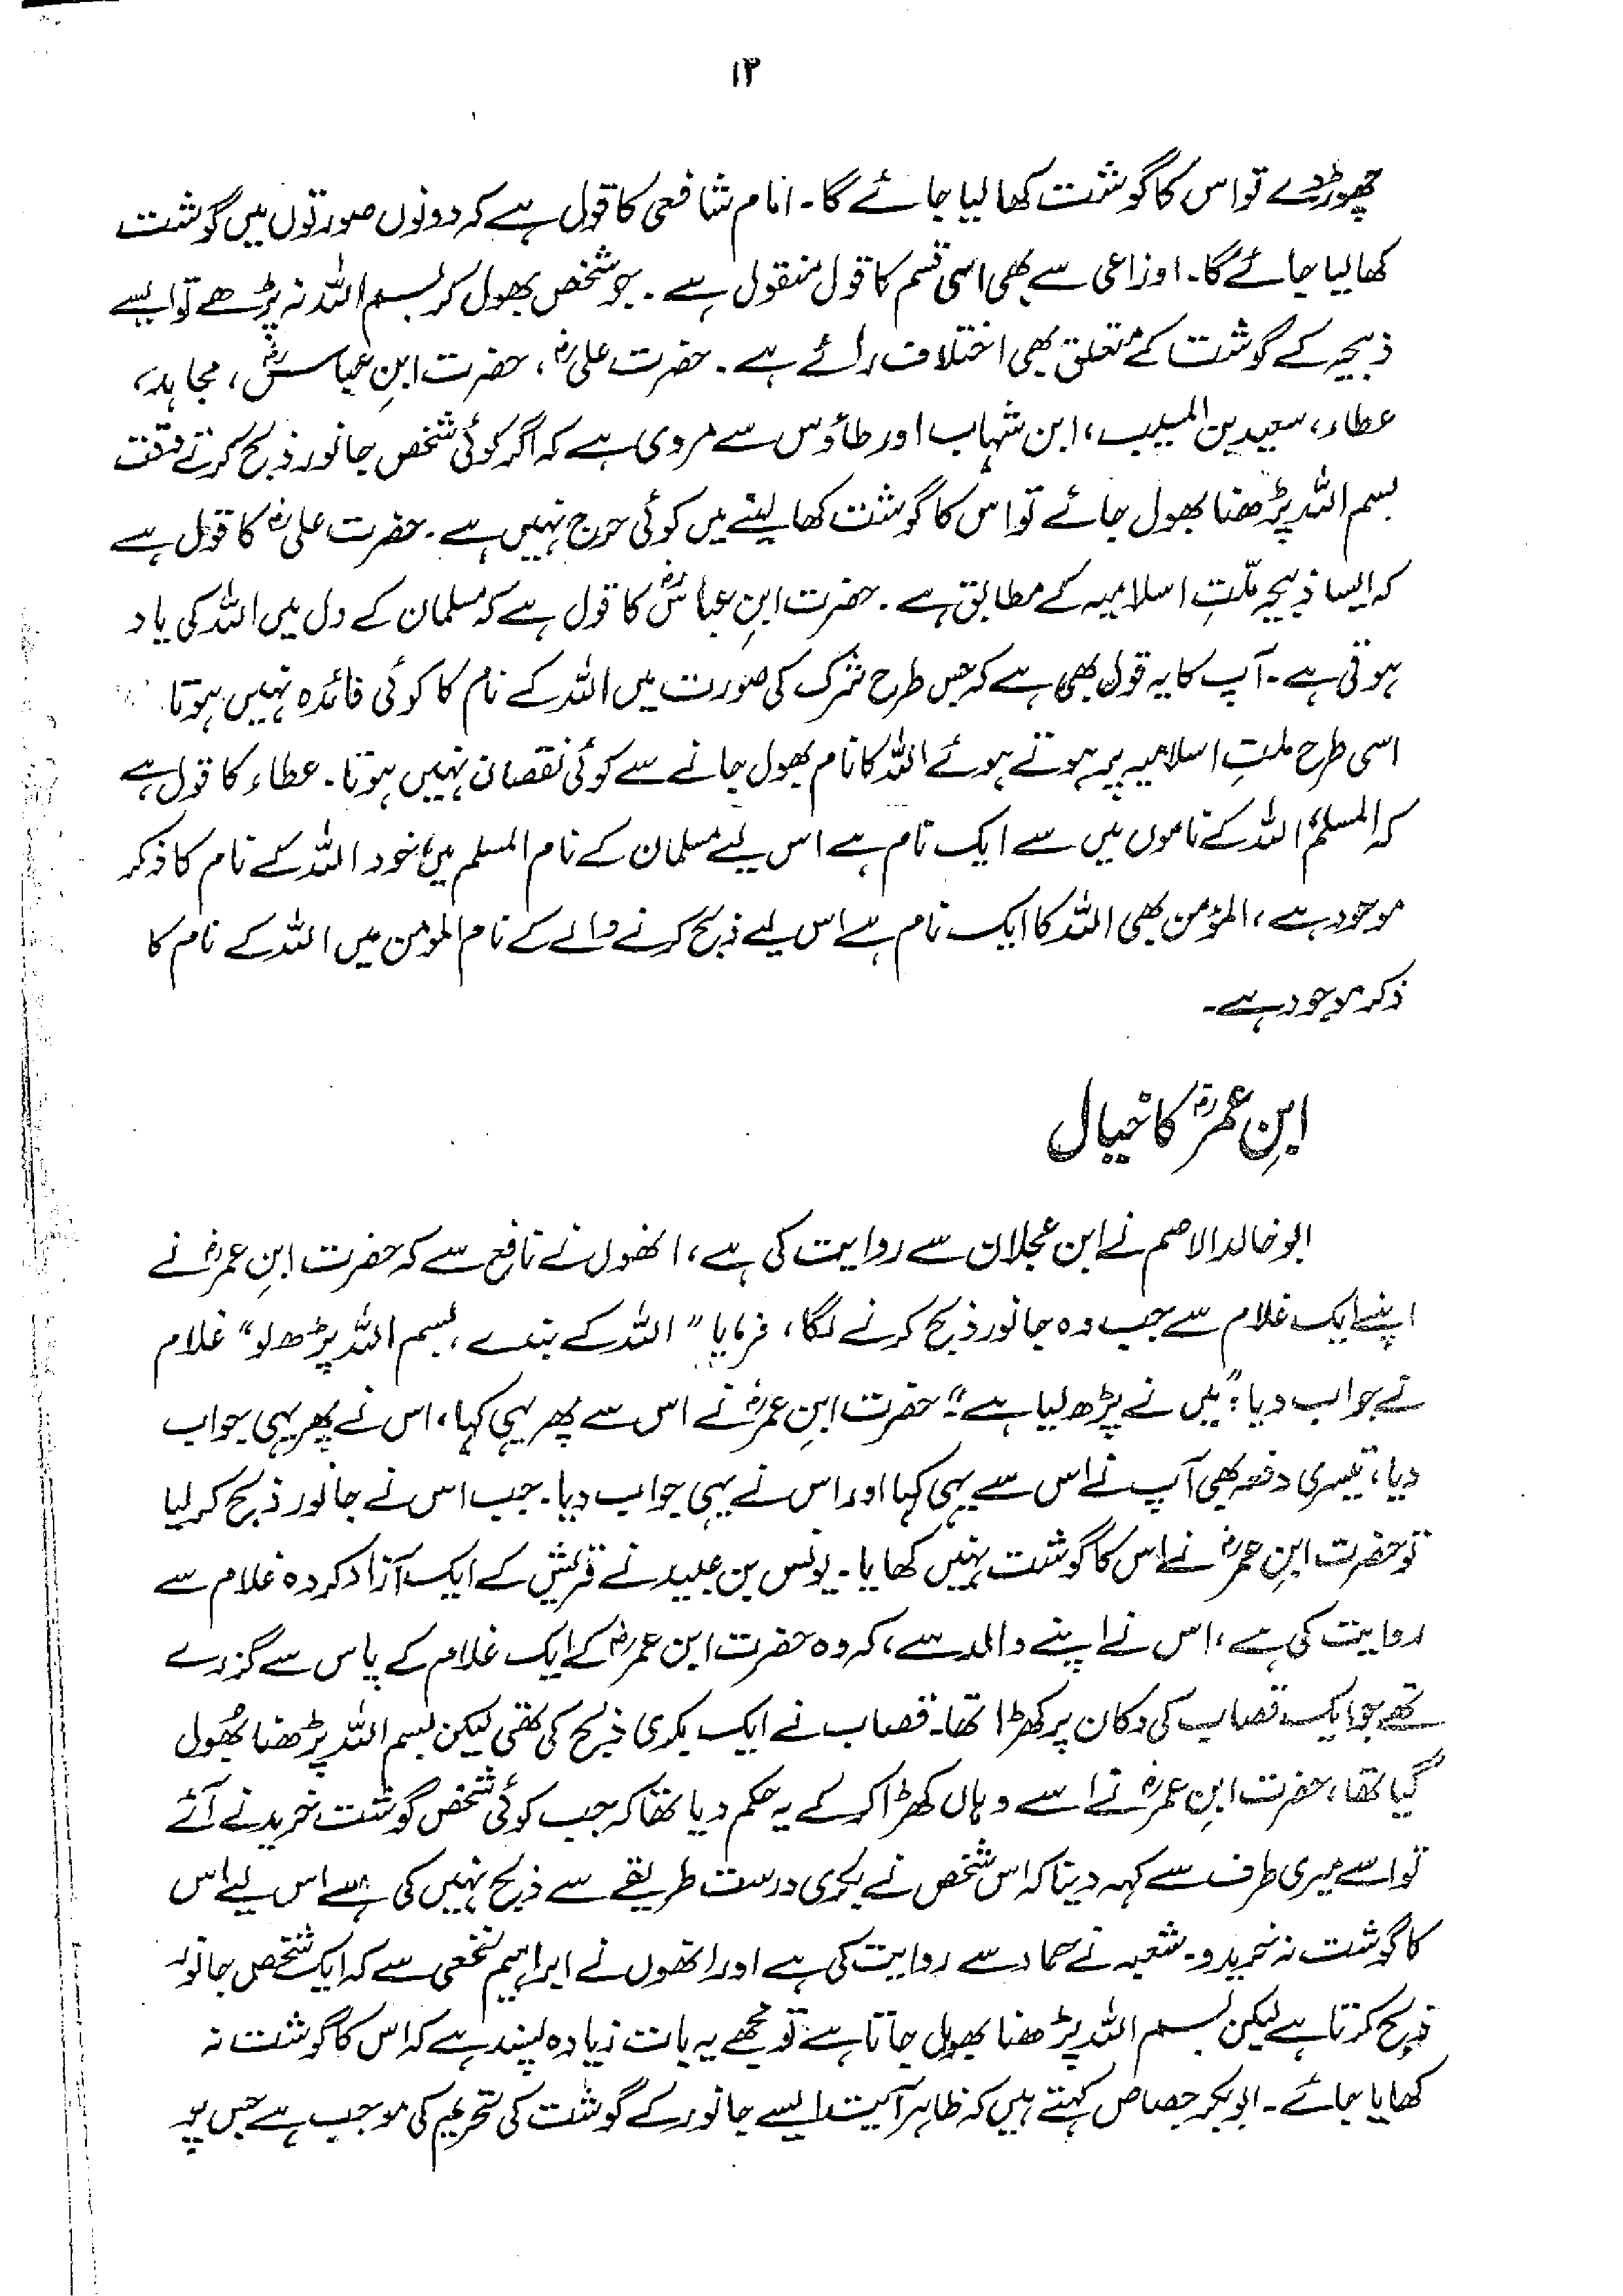 ۱۳
چھوڑ دے تو اس کا گوشت کھا لیا جائے گا۔ امام شافعی کا قول ہے کہ دونوں صورتوں میں گوشت
کھا لیا جائے گا۔ اوزاعی سے بھی اسی قسم کا قول منقول ہے۔ جو شخص بھول کر بسم اللہ نہ پڑھے تو ایسے
ذبیحہ کے گوشت کے متعلق بھی اختلاف رائے ہے۔ حضرت علیؓ، حضرت ابنِ عباسؓ، مجاہد،
عطاء، سعید بن المسیب، ابن شہاب اور طاؤس سے مروی ہے کہ اگر کوئی شخص جانور ذبح کرتے وقت
بسم اللہ پڑھنا بھول جائے تو اس کا گوشت کھا لینے میں کوئی حرج نہیں ہے۔ حضرت علیؓ کا قول ہے
کہ ایسا ذبیحہ ملّتِ اسلامیہ کے مطابق ہے۔ حضرت ابنِ عباسؓ کا قول ہے کہ مسلمان کے دل میں اللہ کی یاد
ہوتی ہے۔ آپ کا یہ قول بھی ہے کہ جس طرح شرک کی صورت میں اللہ کے نام کا کوئی فائدہ نہیں ہوتا
اسی طرح ملتِ اسلامیہ پر ہوتے ہوئے اللہ کا نام بھول جانے سے کوئی نقصان نہیں ہوتا۔ عطاء کا قول ہے
کہ المسلم' اللہ کے ناموں میں سے ایک نام ہے اس لیے مسلمان کے نام المسلم میں' خود اللہ کے نام کا ذکر
موجود ہے، المؤمن بھی اللہ کا ایک نام ہے اس لیے ذبح کرنے والے کے نام المؤمن میں اللہ کے نام کا
ذکر موجود ہے۔
ابنِ عمرؓ کا خیال
ابو خالد الاصم نے ابن عجلان سے روایت کی ہے، انھوں نے نافع سے کہ حضرت ابنِ عمرؓ نے
اپنے ایک غلام سے جب وہ جانور ذبح کرنے لگا، فرمایا "اللہ کے بندے، بسم اللہ پڑھ لو" غلام
نے جواب دیا: "میں نے پڑھ لیا ہے"۔ حضرت ابنِ عمرؓ نے اس سے پھر یہی کہا، اس نے پھر یہی جواب
دیا، تیسری دفعہ بھی آپ نے اس سے یہی کہا اور اس نے یہی جواب دیا۔ جب اس نے جانور ذبح کر لیا
تو حضرت ابنِ عمرؓ نے اس کا گوشت نہیں کھایا۔ یونس بن عبید نے قریش کے ایک آزاد کردہ غلام سے
روایت کی ہے، اس نے اپنے والد سے، کہ وہ حضرت ابن عمرؓ کے ایک غلام کے پاس سے گزرے
تھے جو ایک قصاب کی دکان پر کھڑا تھا۔ قصاب نے ایک بکری ذبح کی تھی لیکن بسم اللہ پڑھنا بُھول
گیا تھا، حضرت ابنِ عمرؓ نے اسے وہاں کھڑا کر کے یہ حکم دیا تھا کہ جب کوئی شخص گوشت خریدنے آئے
تو اسے میری طرف سے کہہ دینا کہ اس شخص نے بکری درست طریقے سے ذبح نہیں کی ہے اس لیے اس
کا گوشت نہ خریدو۔ شعبہ نے حماد سے روایت کی ہے اور انھوں نے ابراہیم نخعی سے کہ ایک شخص جانور
ذبح کرتا ہے لیکن بسم اللہ پڑھنا بھول جاتا ہے تو مجھے یہ بات زیادہ پسند ہے کہ اس کا گوشت نہ
کھایا جائے۔ ابوبکر جصاص کہتے ہیں کہ ظاہر آیت ایسے جانور کے گوشت کی تحریم کی موجب ہے جس پر